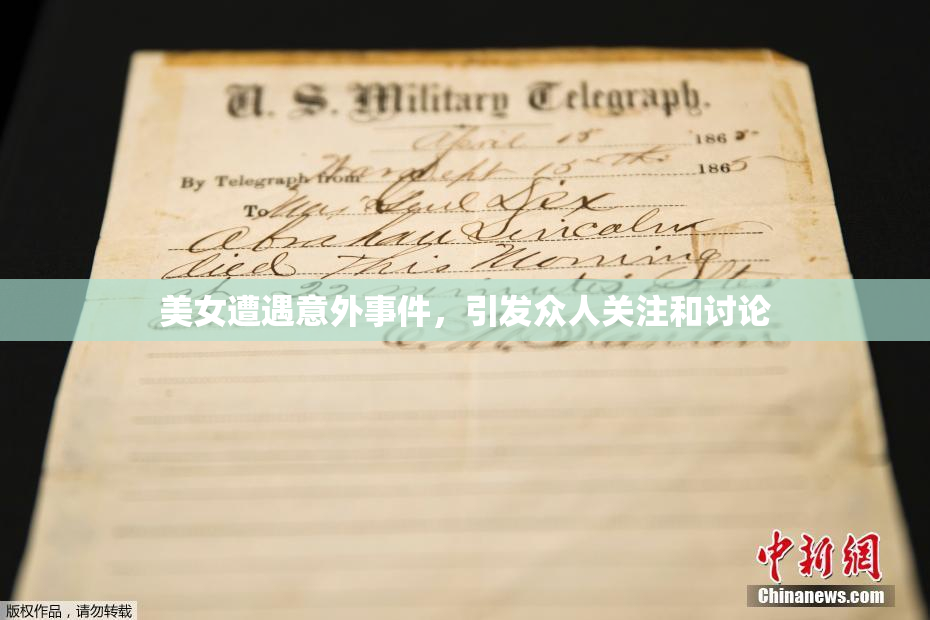 U. S. Military Telegraph.
April 15 1865
By Telegraph from War Dept 15th 1865
To Maj Genl Dix
Abraham Lincoln
died This Morning
at 22 minutes after
美女遭遇意外事件，引发众人关注和讨论
中新网
Chinanews.com
版权作品，请勿转载